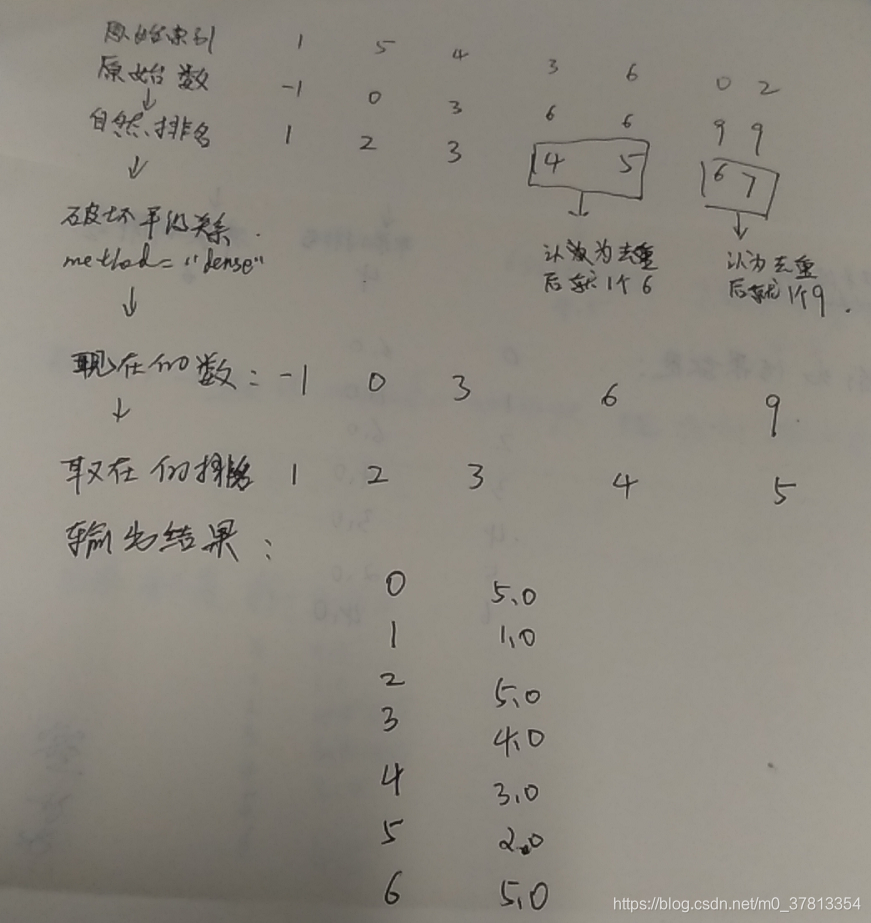 原始索引 1 5 4 3 6 0 2
原始数 -1 0 3 6 6 9 9
↓
自然排名 1 2 3 4 5 6 7
↓
破坏平级关系.
method="dense"
认为去重
后就1个6
认为去重
后就1个9.
↓
现在的数: -1 0 3 6 9.
↓
现在的排名 1 2 3 4 5
输出结果:
0 5.0
1 1.0
2 5.0
3 4.0
4 3.0
5 2.0
6 5.0
https://blog.csdn.net/m0_37813354